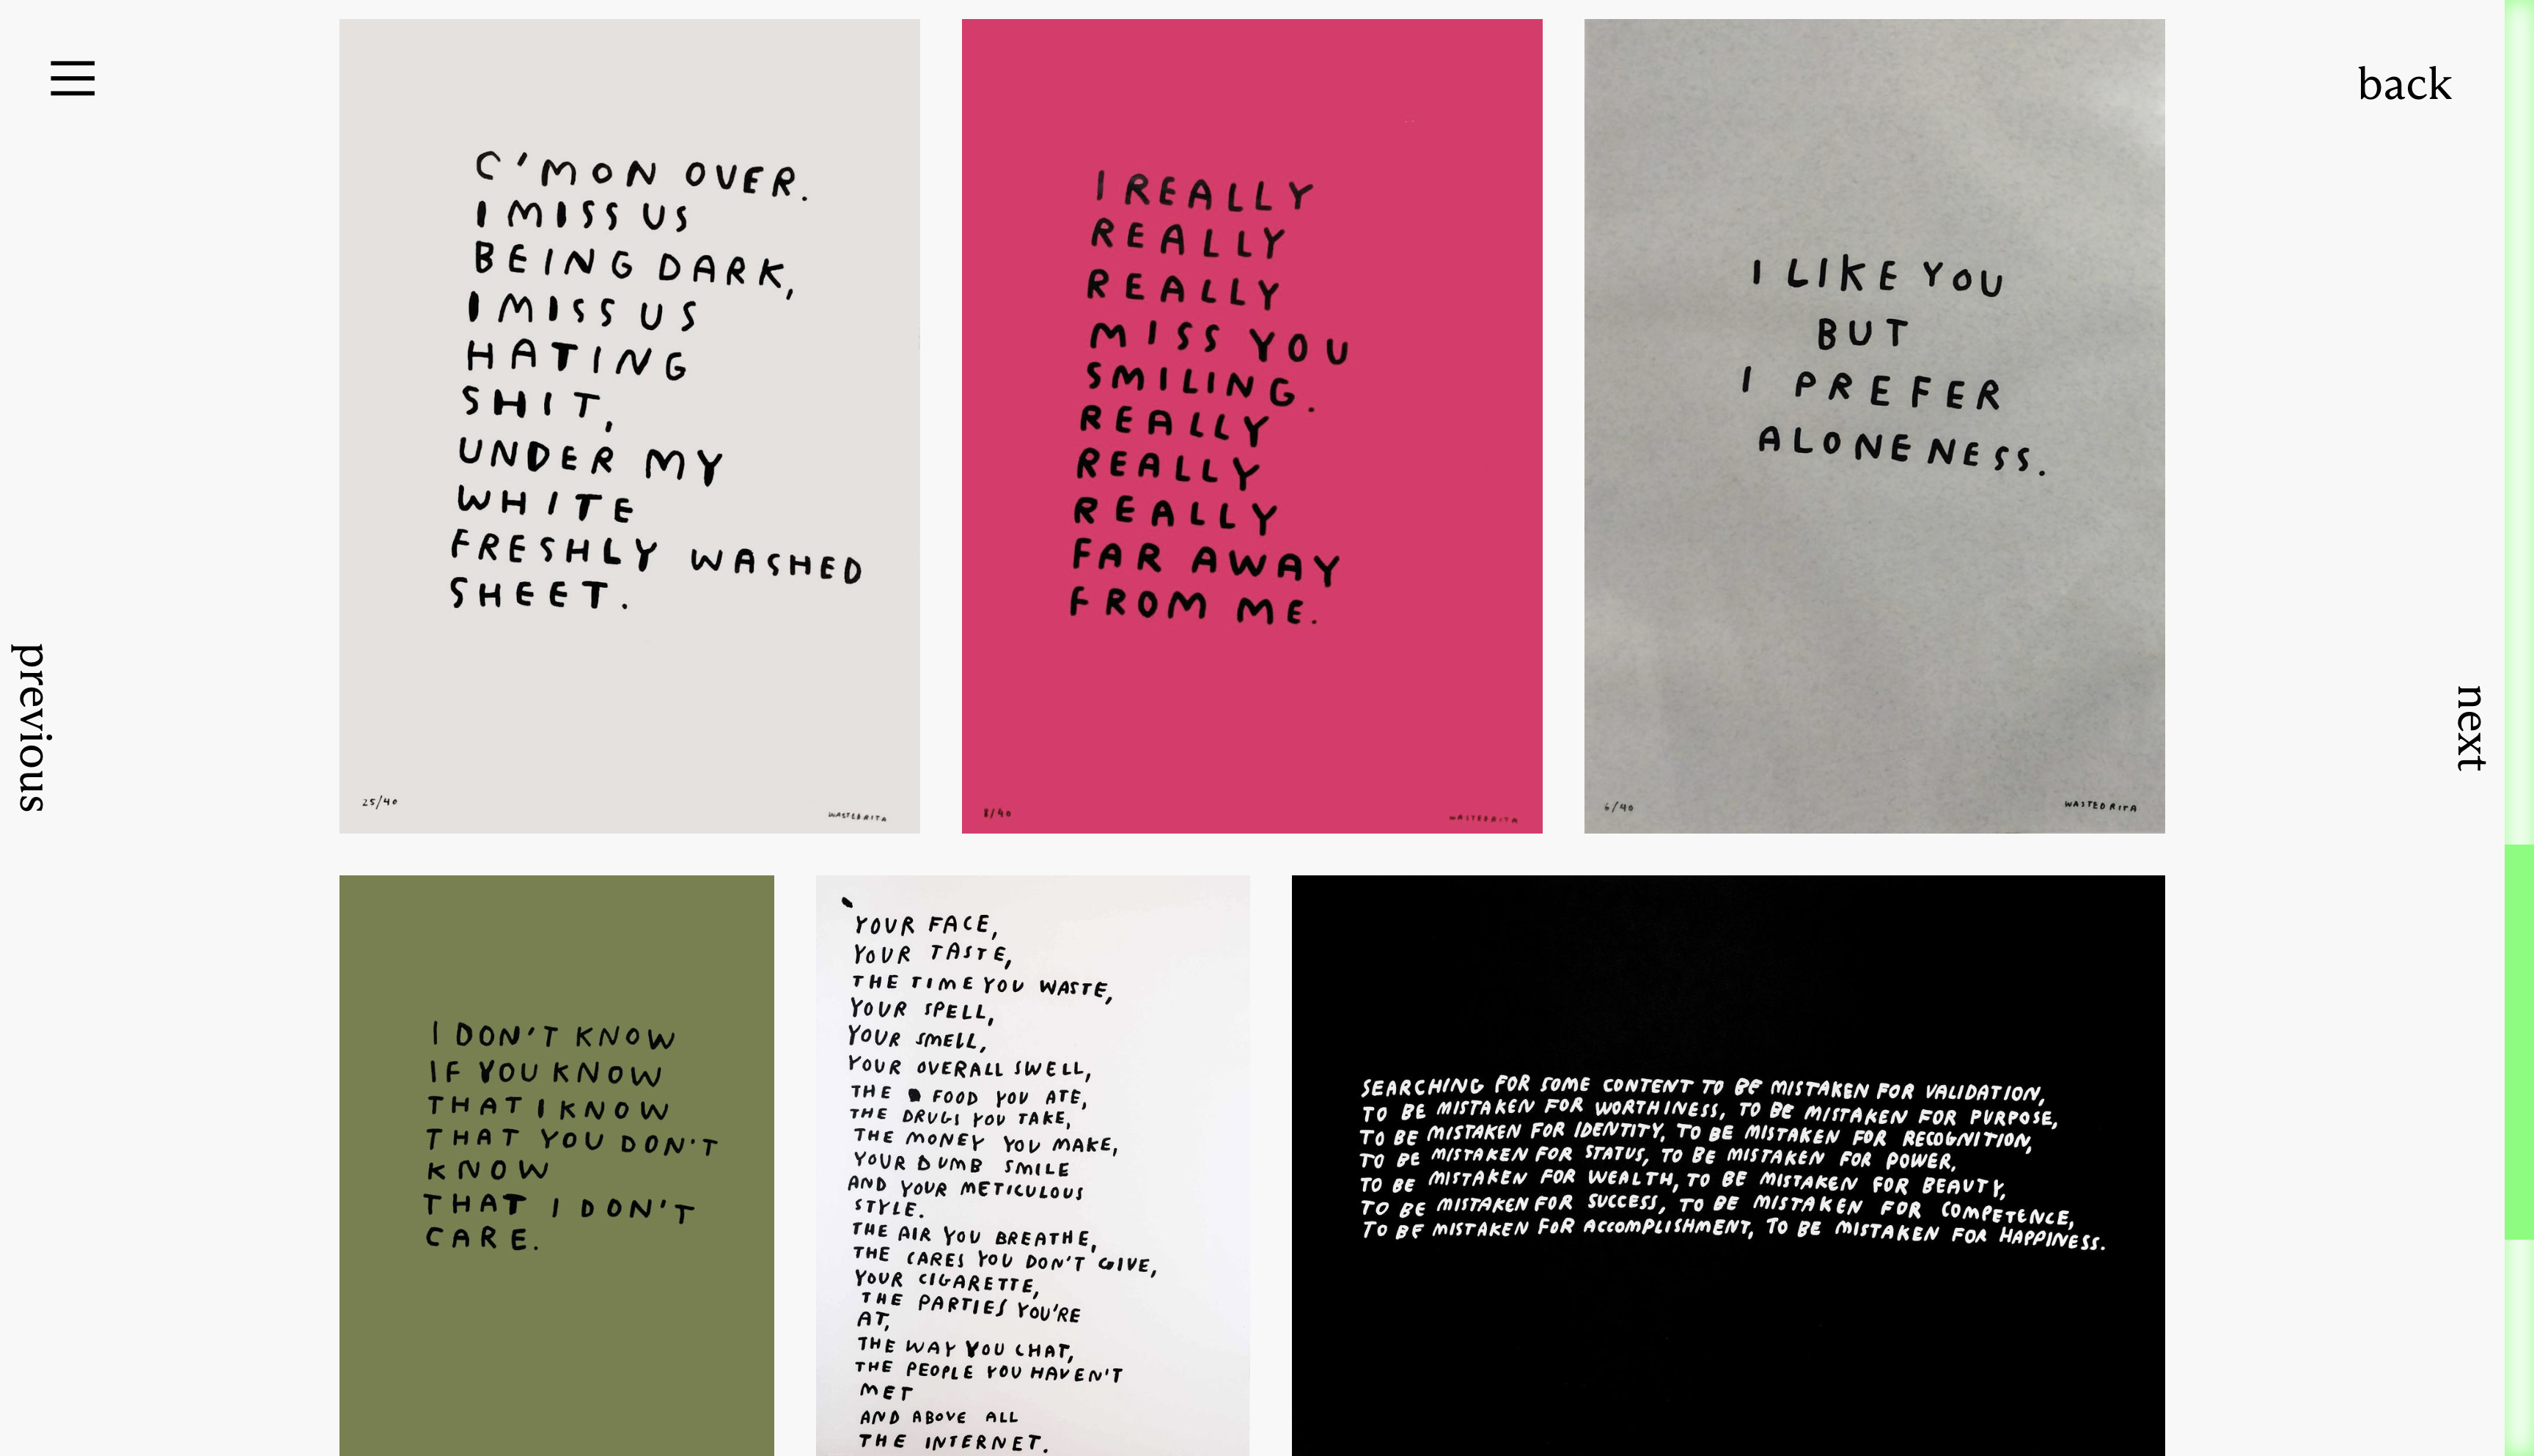 back
previous
next
C'MON OVER.
I MISS US
BEING DARK,
I MISS US
HATING
SHIT,
UNDER MY
WHITE
FRESHLY WASHED
SHEET.
25/40
WASTEDRITA
I REALLY
REALLY
REALLY
MISS YOU
SMILING.
REALLY
REALLY
REALLY
FAR AWAY
FROM ME.
8/40
WASTEDRITA
I LIKE YOU
BUT
I PREFER
ALONENESS.
6/40
WASTEDRITA
I DON'T KNOW
IF YOU KNOW
THAT I KNOW
THAT YOU DON'T
KNOW
THAT I DON'T
CARE.
YOUR FACE,
YOUR TASTE,
THE TIME YOU WASTE,
YOUR SPELL,
YOUR SMELL,
YOUR OVERALL SWELL,
THE FOOD YOU ATE,
THE DRUGS YOU TAKE,
THE MONEY YOU MAKE,
YOUR DUMB SMILE
AND YOUR METICULOUS
STYLE.
THE AIR YOU BREATHE,
THE CARES YOU DON'T GIVE,
YOUR CIGARETTE,
THE PARTIES YOU'RE
AT,
THE WAY YOU CHAT,
THE PEOPLE YOU HAVEN'T
MET
AND ABOVE ALL
THE INTERNET.
SEARCHING FOR SOME CONTENT TO BE MISTAKEN FOR VALIDATION,
TO BE MISTAKEN FOR WORTHINESS, TO BE MISTAKEN FOR PURPOSE,
TO BE MISTAKEN FOR IDENTITY, TO BE MISTAKEN FOR RECOGNITION,
TO BE MISTAKEN FOR STATUS, TO BE MISTAKEN FOR POWER,
TO BE MISTAKEN FOR WEALTH, TO BE MISTAKEN FOR BEAUTY,
TO BE MISTAKEN FOR SUCCESS, TO BE MISTAKEN FOR COMPETENCE,
TO BE MISTAKEN FOR ACCOMPLISHMENT, TO BE MISTAKEN FOR HAPPINESS.